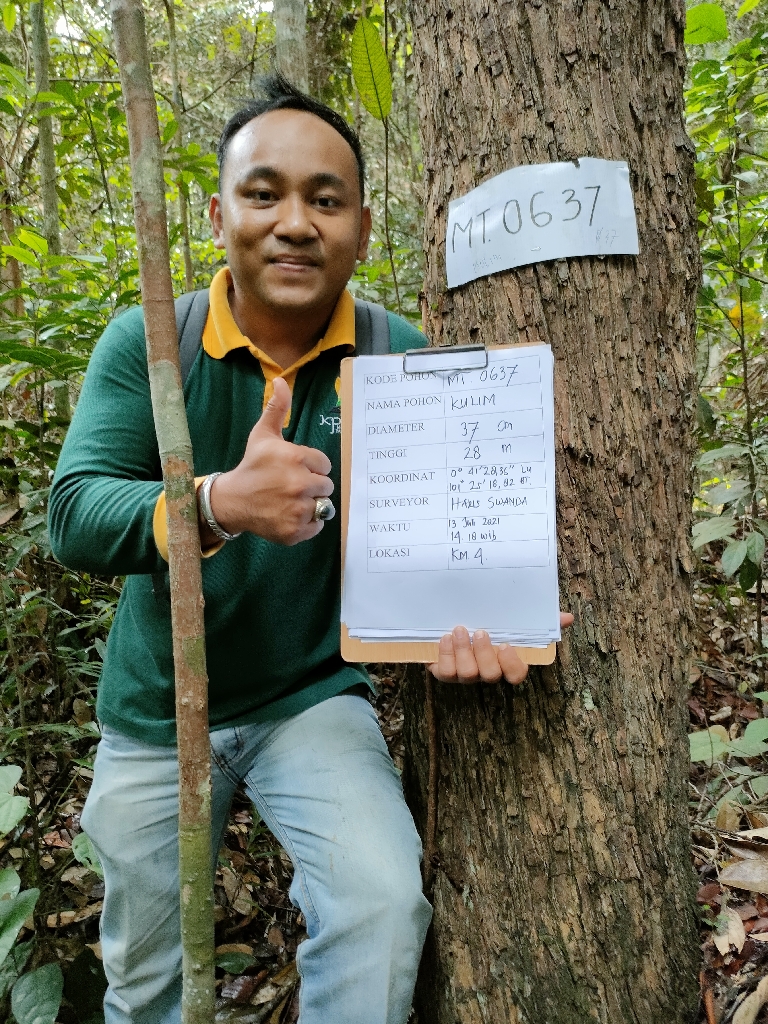 MT. 0637
KODE POHON MT. 0637
NAMA POHON KULIM
DIAMETER 37 cm
TINGGI 28 m
KOORDINAT 0° 41' 28,36" LU
101° 25' 18,82 BT.
SURVEYOR HARIS SWANDA
WAKTU 13 Juli 2021
14.18 wib
LOKASI KM 4